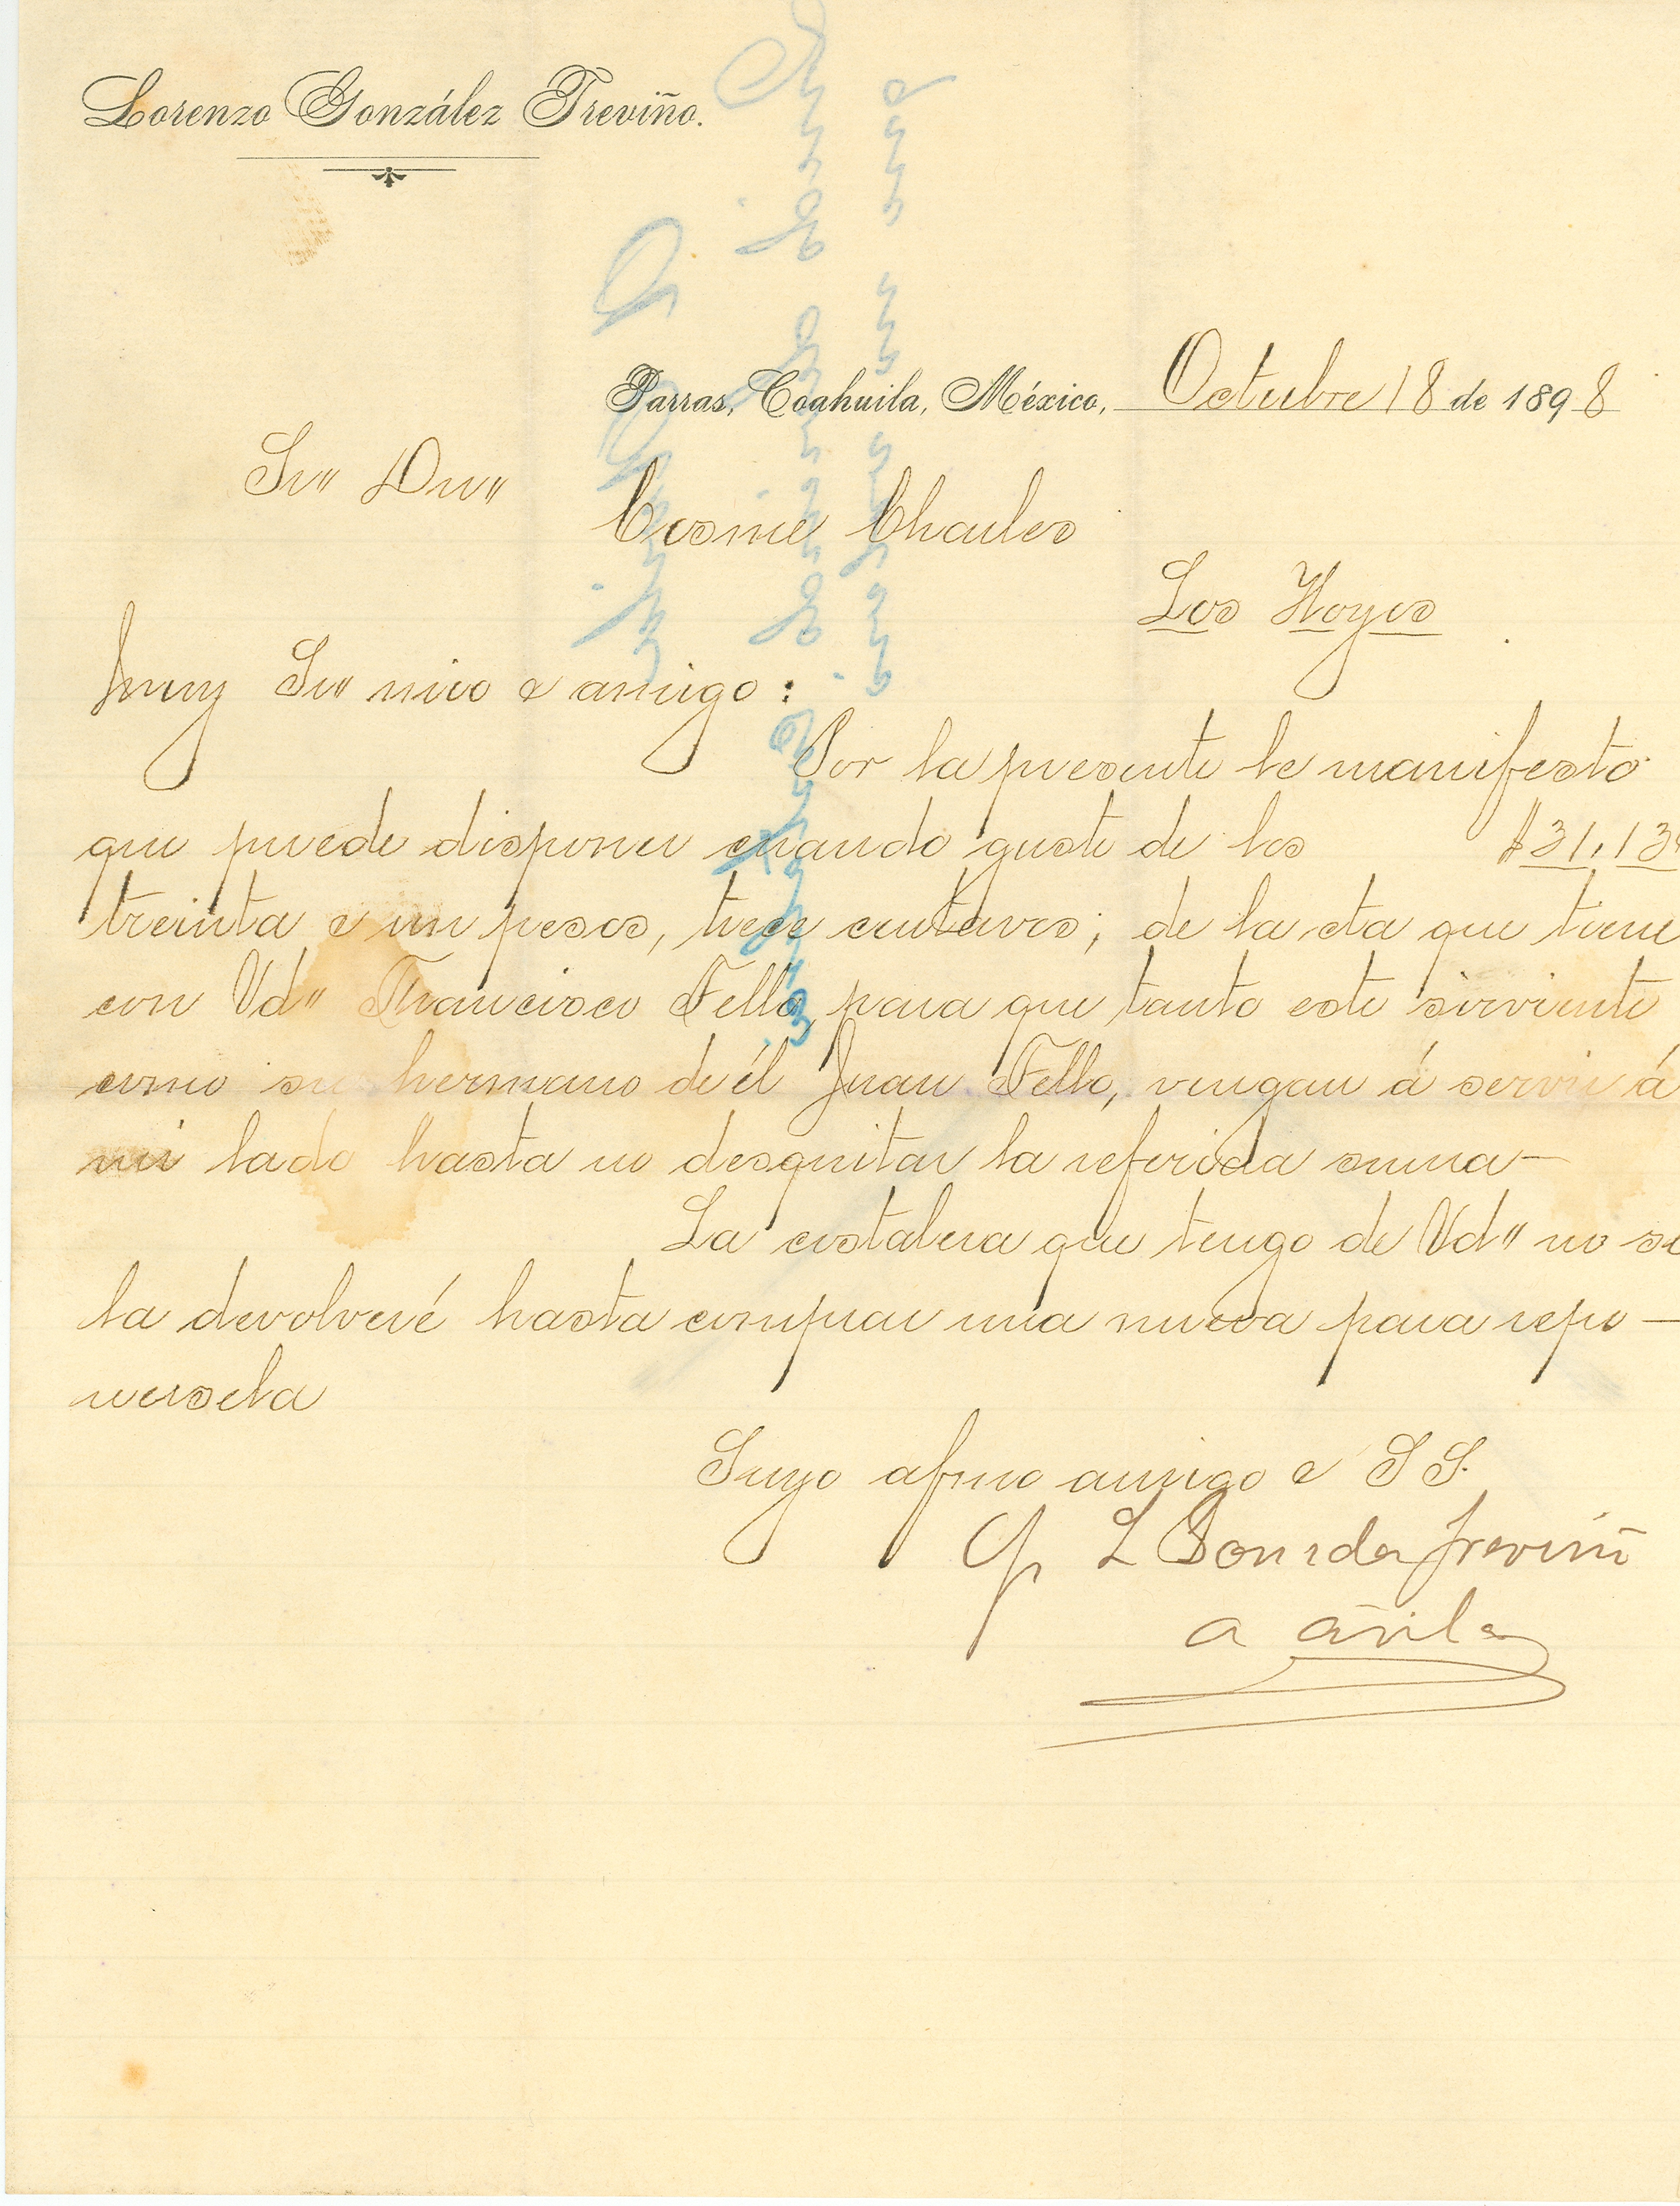 Lorenzo González Treviño.
Parras, Coahuila, México, Octubre 18 de 1898
Sr" Dn"
Cosme Charles
Los Hoyos
Muy Sr" mio e amigo:
Por la presente le manifesto
que puede disponer cuando guste de los $31,13
treinta e un pesos, trece centavos; de la cta que tiene
con Vd" Francisco Tello, para que tanto este sirviente
como su hermano de él Juan Tello, vengan á servir á
mi lado hasta no desquitar la referida suma—
La costalera que tengo de Vd" no se
la devolveré hasta comprar una nueva para repo—
nersela
Suyo afmo amigo e S S.
P. L González Treviño
A Ávila